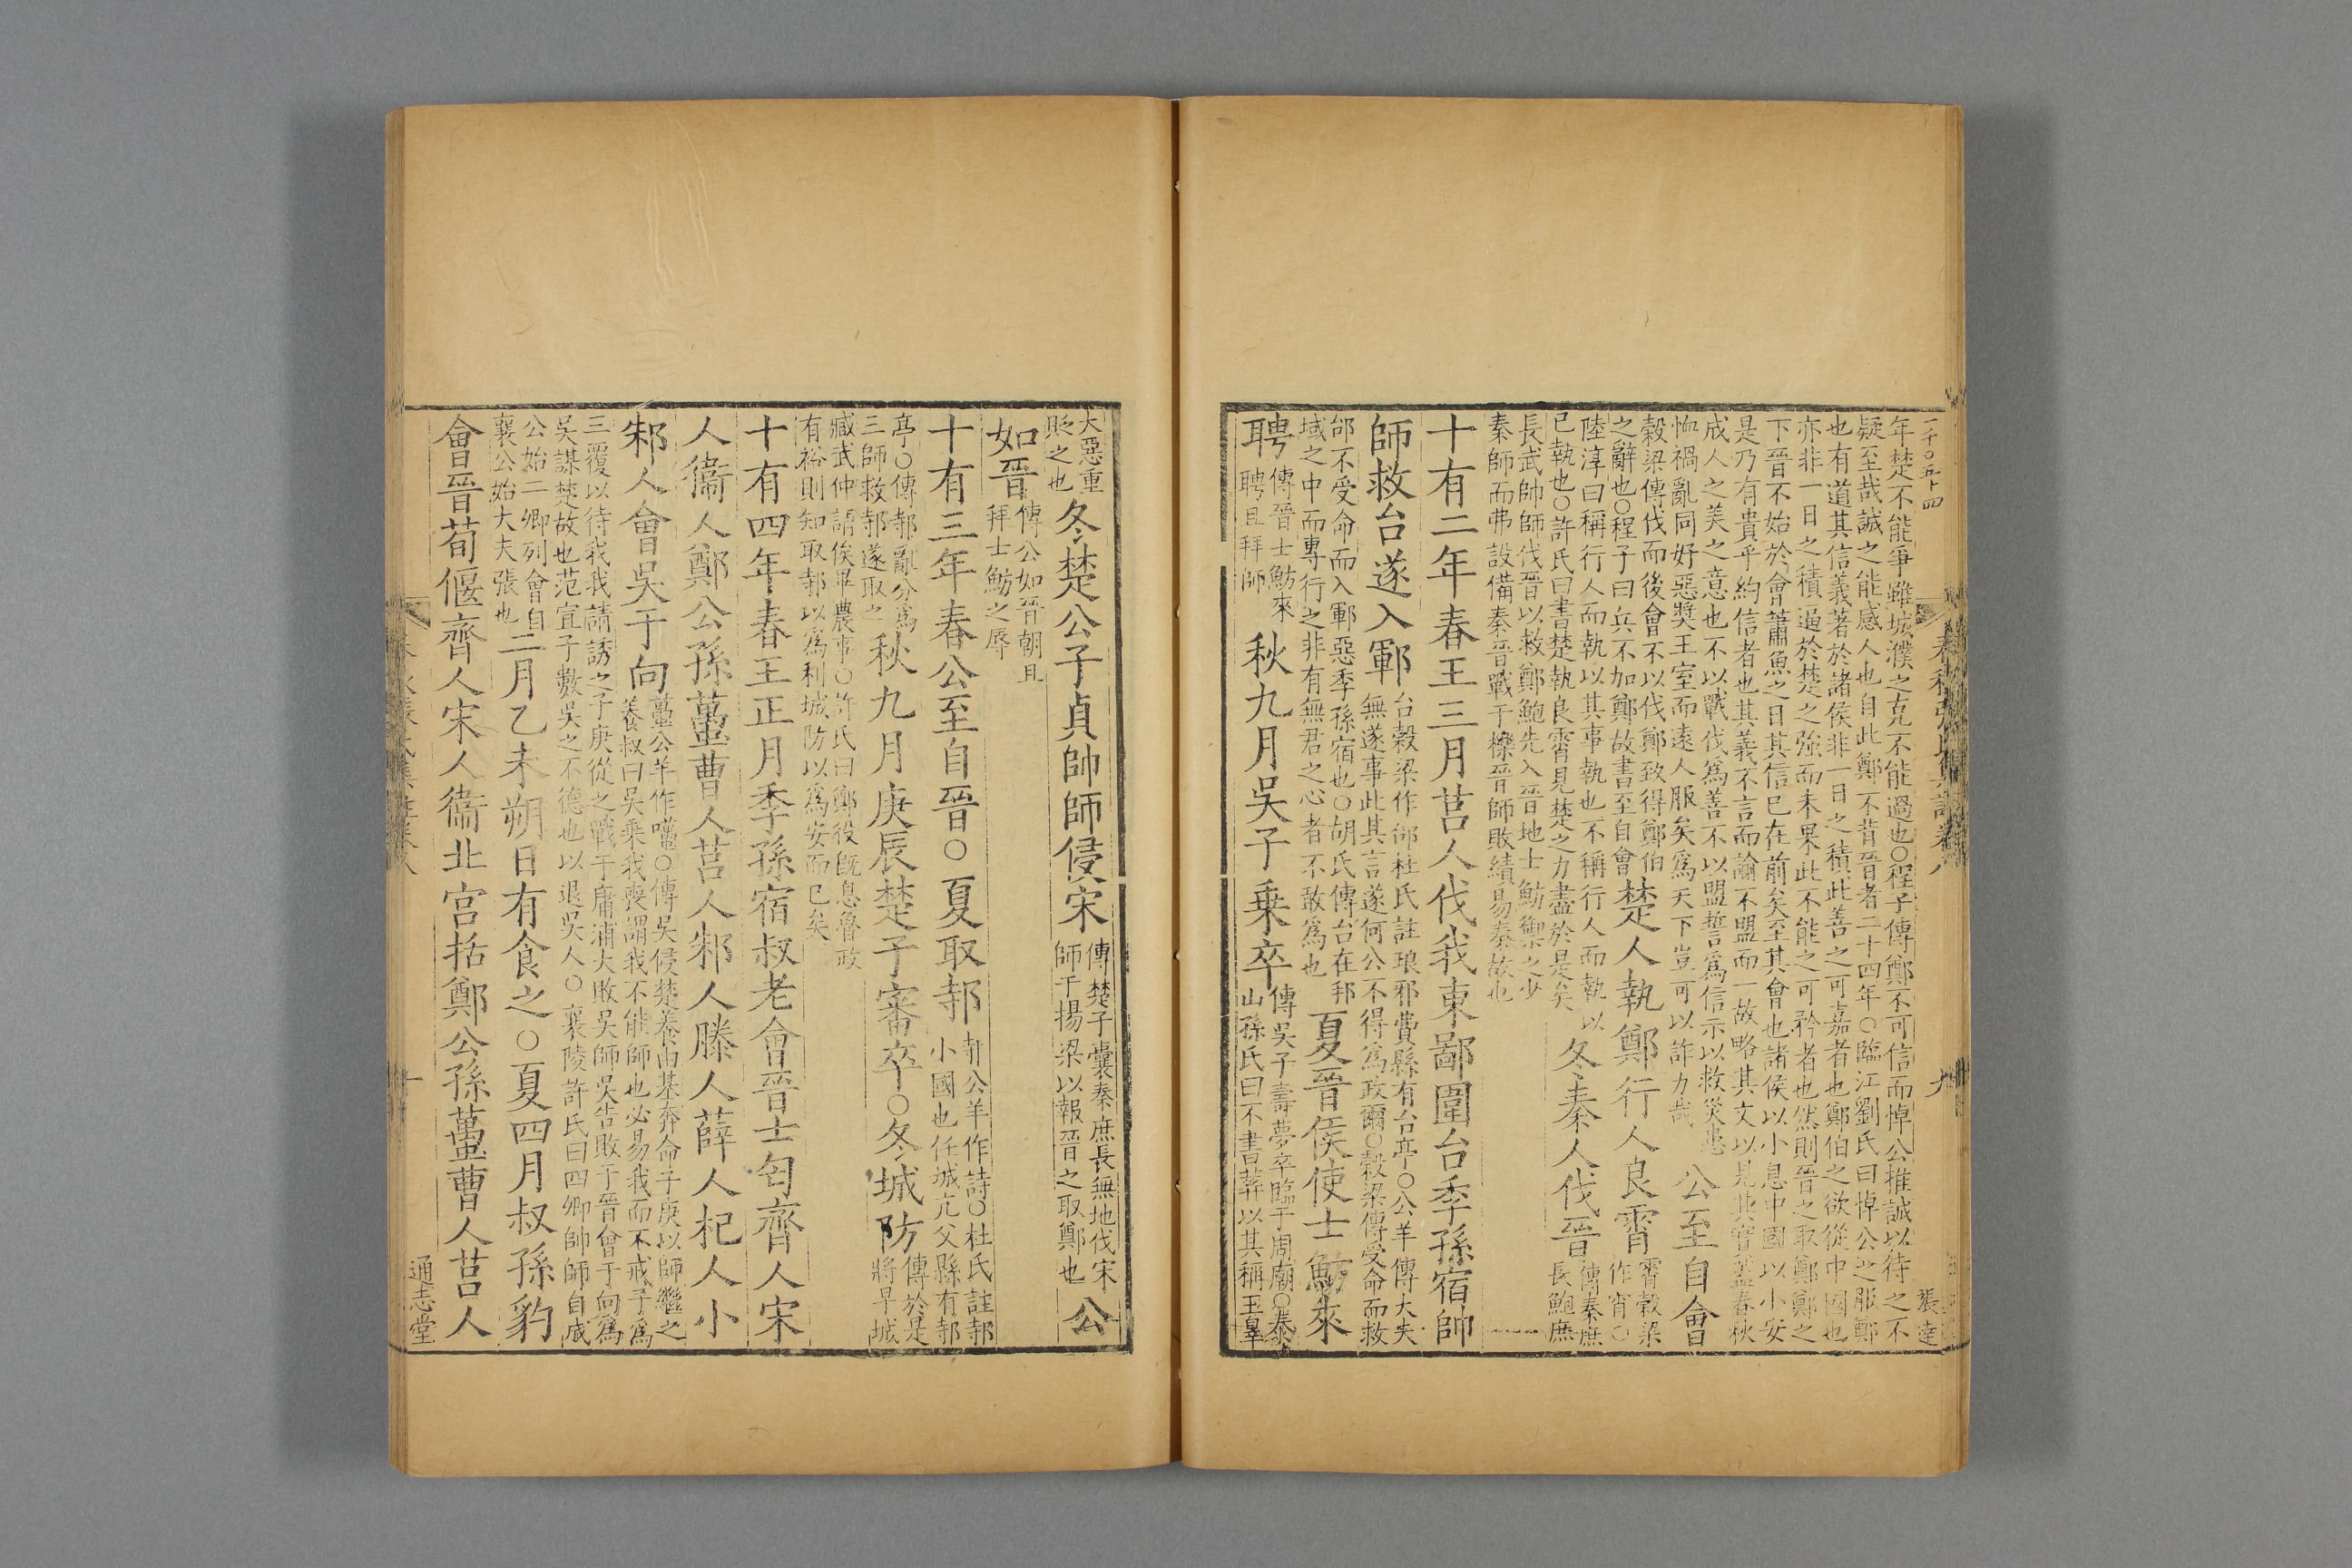 一千〇五十四
張達
年楚不能爭雖城濮之克不能過也〇程子傳鄭不可信而悼公推誠以待之不
疑至哉誠之能感人也自此鄭不背晉者二十四年〇臨江劉氏曰悼公之服鄭
也有道其信義著於諸侯非一日之積此善之可嘉者也鄭伯之欲從中國也
亦非一日之積逼於楚之強而未果此不能之可矜者也然則晉之取鄭鄭之
下晉不始於會蕭魚之日其信已在前矣至其會也諸侯以小息中國以小安
是乃有貴乎約信者也其義不言而諭不盟而一故略其文以見其實蓋春秋
成人之美之意也不以戰伐為善不以盟誓為信示以救災患
恤禍亂同好惡奬王室而遠人服矣為天下豈可以詐力哉
公至自會
穀梁傳伐而後會不以伐鄭致得鄭伯
之辭也〇程子曰兵不加鄭故書至自會
楚人執鄭行人良霄
霄穀梁
作宵〇
陸淳曰稱行人而執以其事執也不稱行人而執以
已執也〇許氏曰書楚執良霄見楚之力盡於是矣
冬秦人伐晉
傳秦庶
長鮑庶
長武帥師伐晉以救鄭鮑先入晉地士魴禦之少
秦師而弗設備秦晉戰于櫟晉師敗績易秦故也
十有二年春王三月莒人伐我東鄙圍台季孫宿帥
師救台遂入鄆
台穀梁作邰杜氏註琅邪費縣有台亭〇公羊傳大夫
無遂事此其言遂何公不得為政爾〇穀梁傳受命而救
邰不受命而入鄆惡季孫宿也〇胡氏傳台在邦
域之中而專行之非有無君之心者不敢為也
夏晉侯使士魴來
聘
傳晉士魴來
聘且拜師
秋九月吳子乗卒
傳吳子壽夢卒臨于周廟〇泰
山孫氏曰不書葬以其稱王辠
大惡重
貶之也
冬楚公子貞帥師侵宋
傳楚子囊秦庶長無地伐宋
師于揚梁以報晉之取鄭也
公
如晉
傳公如晉朝且
拜士魴之辱
十有三年春公至自晉〇夏取邿
邿公羊作詩〇杜氏註邿
小國也任城亢父縣有邿
亭〇傳邿亂分為
三師救邿遂取之
秋九月庚辰楚子審卒〇冬城防
傳於是
將早城
臧武仲請俟畢農事〇許氏曰鄭役旣息魯政
有裕則知取邿以為利城防以為安而已矣
十有四年春王正月季孫宿叔老會晉士匄齊人宋
人衞人鄭公孫蠆曹人莒人邾人滕人薛人杞人小
邾人會吳于向
蠆公羊作囆〇傳吳侵楚養由基奔命子庚以師繼之
養叔曰吳乗我喪謂我不能師也必易我而不戒子為
三覆以待我我請誘之子庚從之戰于庸浦大敗吳師吳告敗于晉會于向為
吳謀楚故也范宣子數吳之不德也以退吳人〇襄陵許氏曰四卿帥師自成
公始二卿列會自
襄公始大夫張也
二月乙未朔日有食之〇夏四月叔孫豹
會晉荀偃齊人宋人衞北宮括鄭公孫蠆曹人莒人
通志堂